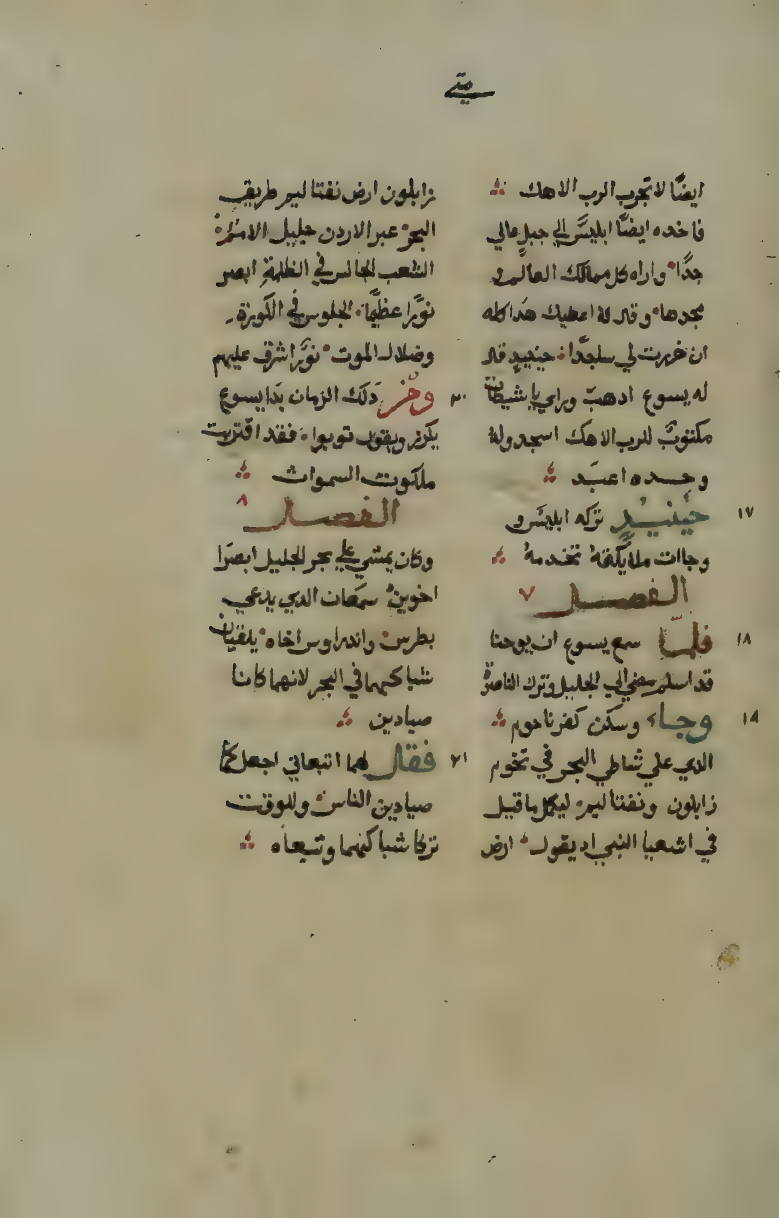 متي
ايضًا لا تجرب الرب الاهك
فاخده ايضًا ابليس الي جبل عالي
جدًا واراه كل ممالك العالم و
مجدها وقال له اعطيك هدا كله
ان خررت لي ساجدًا حينيدٍ قال
له يسوع ادهب وراي يا شيطان
مكتوبٌ للرب الاهك اسجد وله
وحده اعبد
١٧ حينيدٍ تركه ابليس و
وجاات ملايكة تخدمه
الفصل ٧
١٨ فلما سمع يسوع ان يوحنا
قد اسلم مضي الي الجليل وترك الناصرة
١٩ وجاء وسكن كفرناحوم
الدي علي شاطي البحر في تخوم
زابلون ونفتاليم ليكمل ما قيل
في اشعيا النبي اد يقول ارض
زابلون ارض نفتاليم طريق
البحر عبر الاردن جليل الامم
الشعب الجالس في الظلمة ابصر
نورًا عظيمًا الجلوس في الكورة
وضلال الموت نورًا اشرق عليهم
٢٠ ومن دلك الزمان بدا يسوع
يكرز ويقول توبوا فقد اقتربت
ملكوت السموات
الفصل ٨
وكان يمشي علي بحر الجليل ابصر
اخوين سمعان الدي يدعي
بطرس واندراوس اخاه يلقيان
شباكهما في البحر لانهما كانا
صيادين
٢١ فقال لهما اتبعاني اجعلكما
صيادين الناس وللوقت
تركا شباكهما وتبعاه